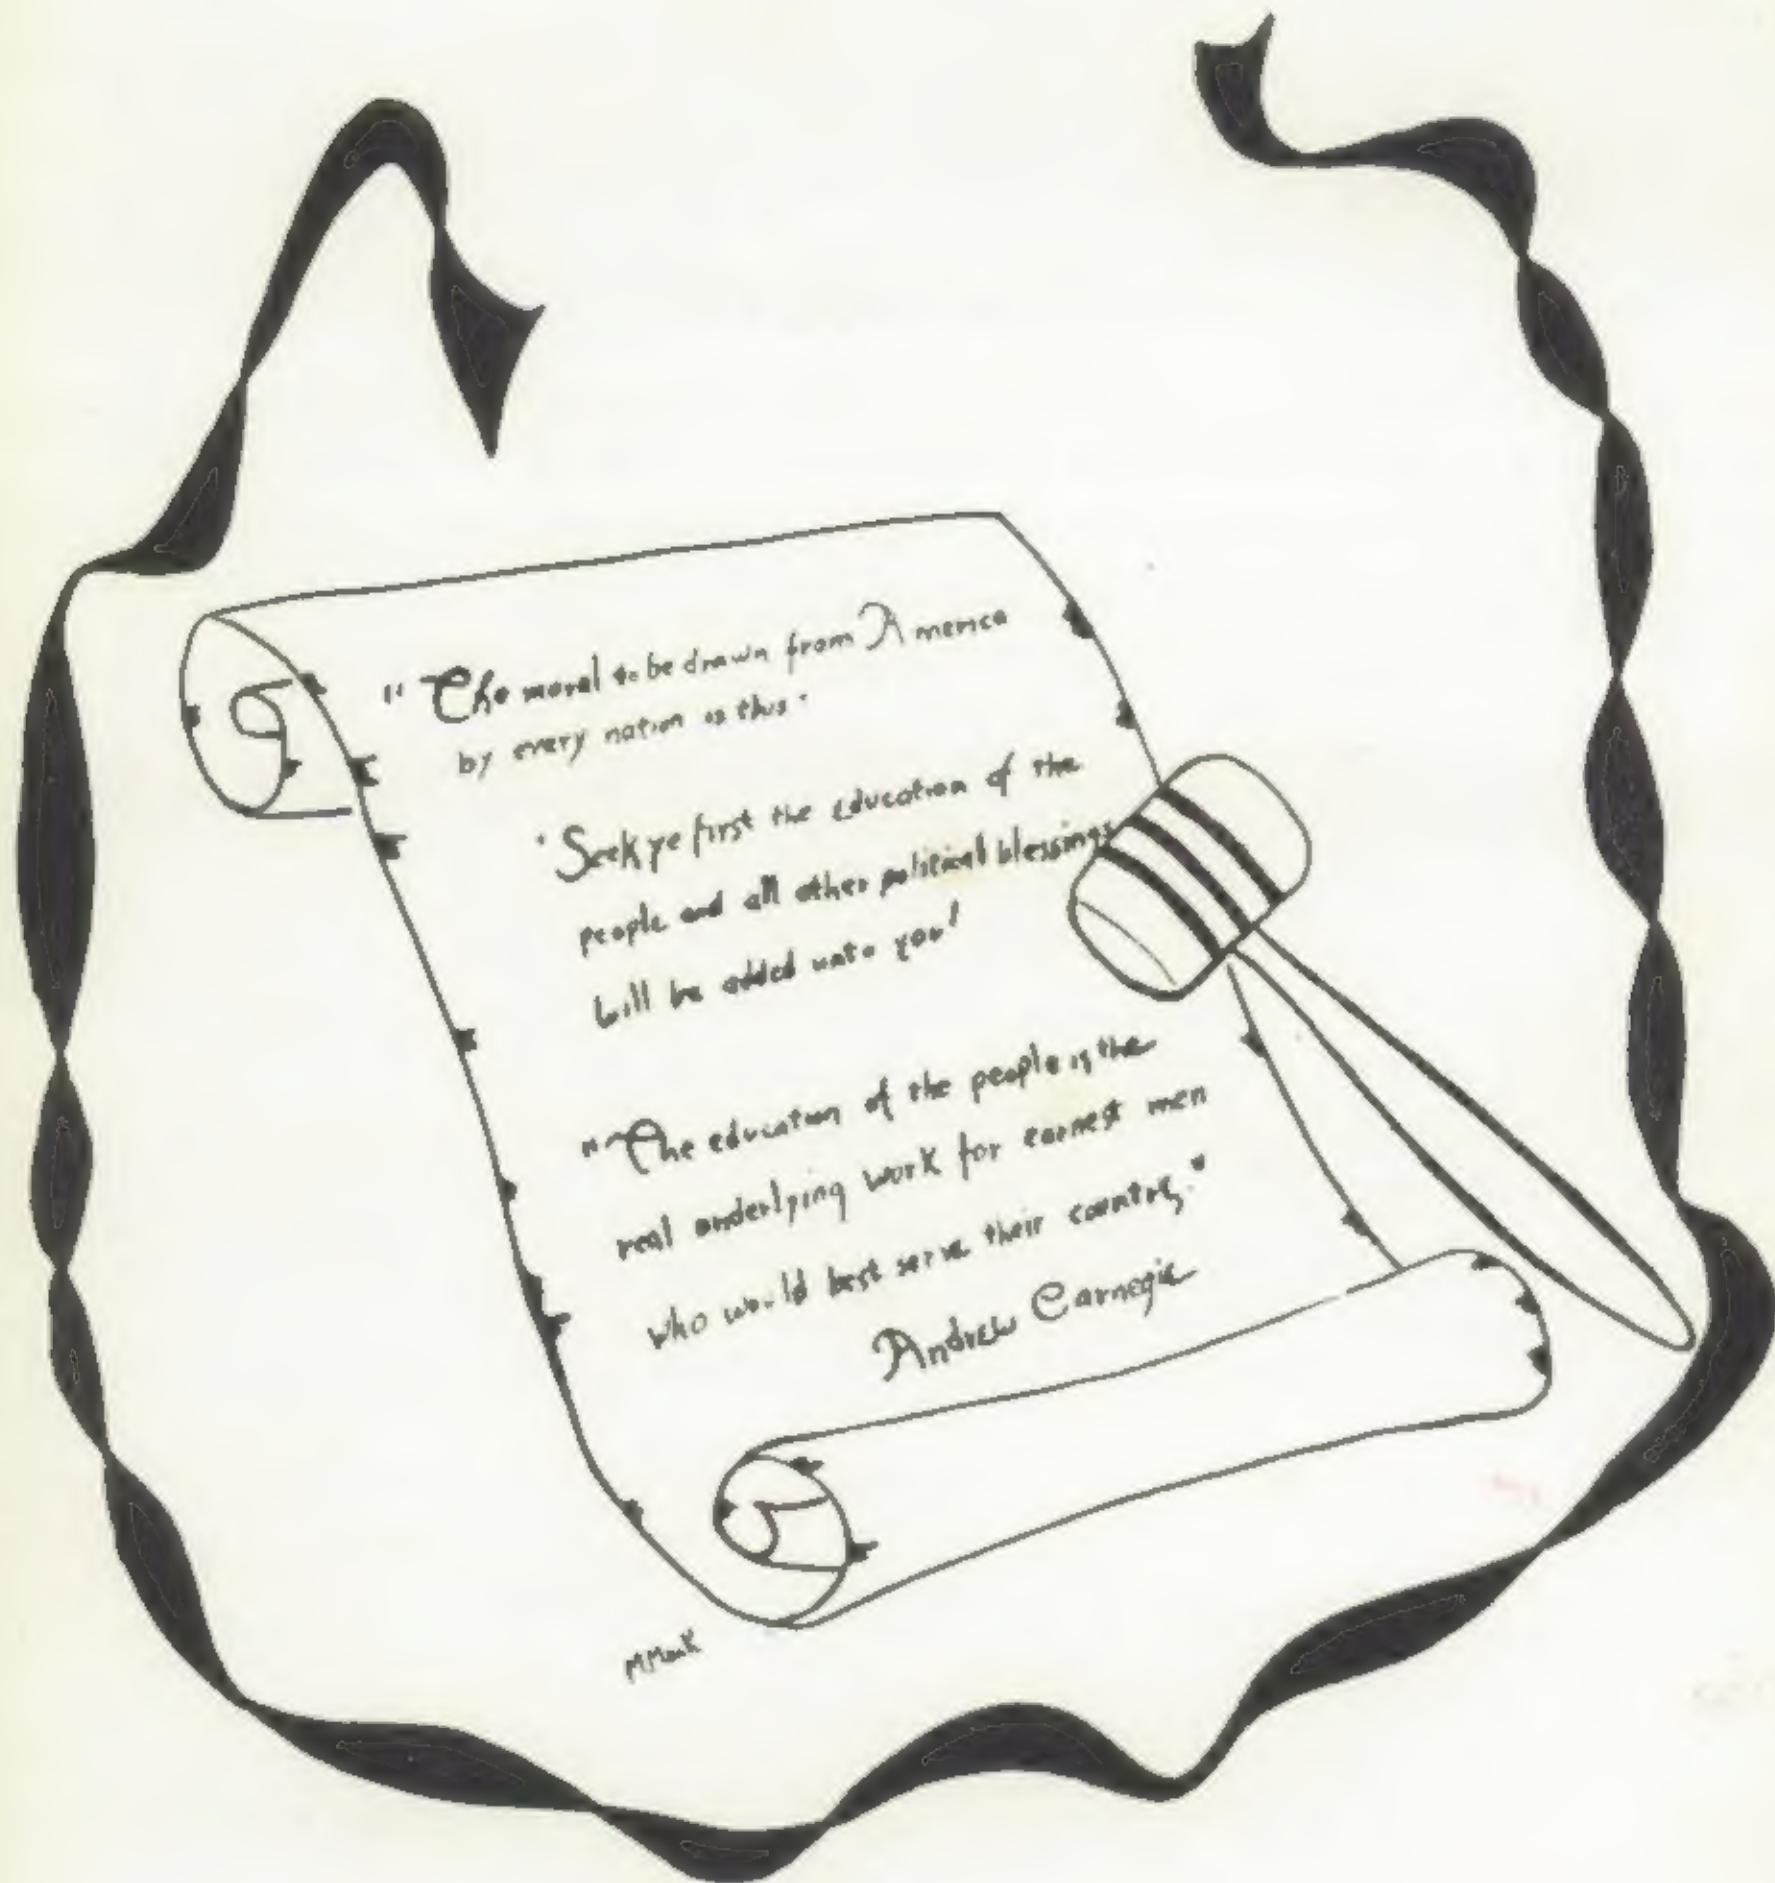 " The moral to be drawn from America
by every nation is this·
'Seek ye first the education of the
people and all other political blessings
will be added unto you'
"The education of the people is the
real underlying work for earnest men
who would best serve their country."
Andrew Carnegie